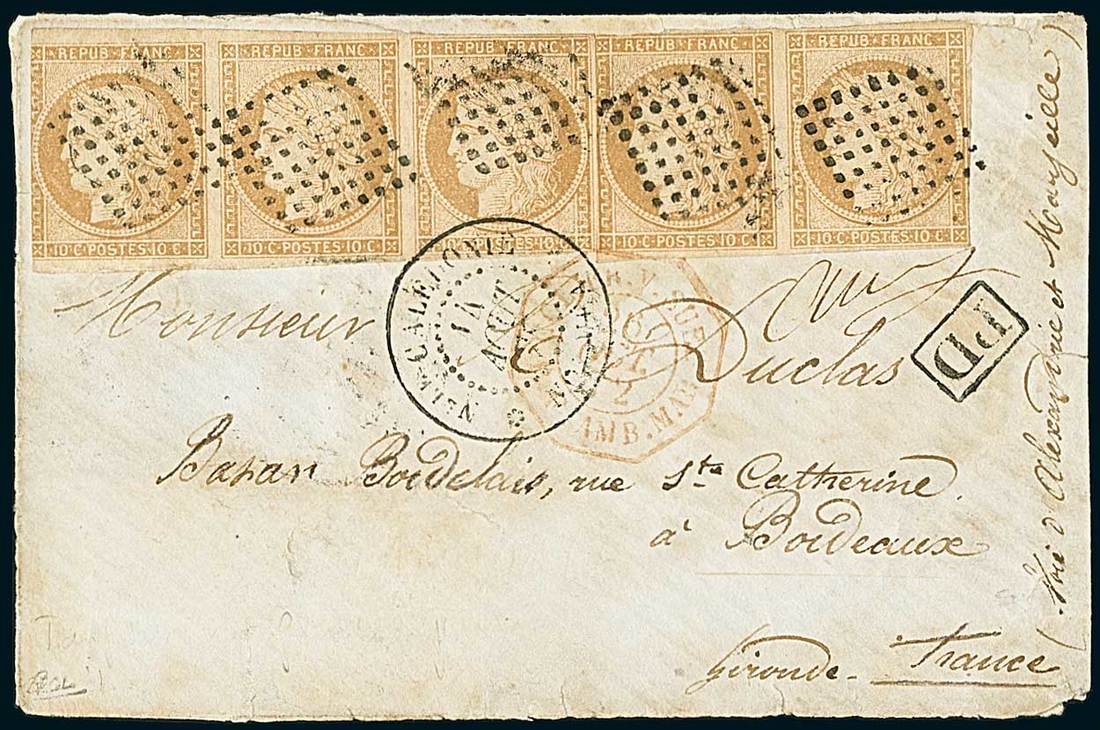 REPUB FRANC
10 C POSTES 10 C
REPUB FRANC
10 C POSTES 10 C
REPUB FRANC
10 C POSTES 10
REPUB FRANC
10 C POSTES 10 C
REPUB FRANC
10 C POSTES 10 C
Nlle CALEDONIE
AOUT
NOUMEA
AMB. MAR
PD
Monsieur Duclas
Bazar Bordelais, rue Ste Catherine.
à Bordeaux
Gironde - France
(Voie d'Alexandrie et Marseille)